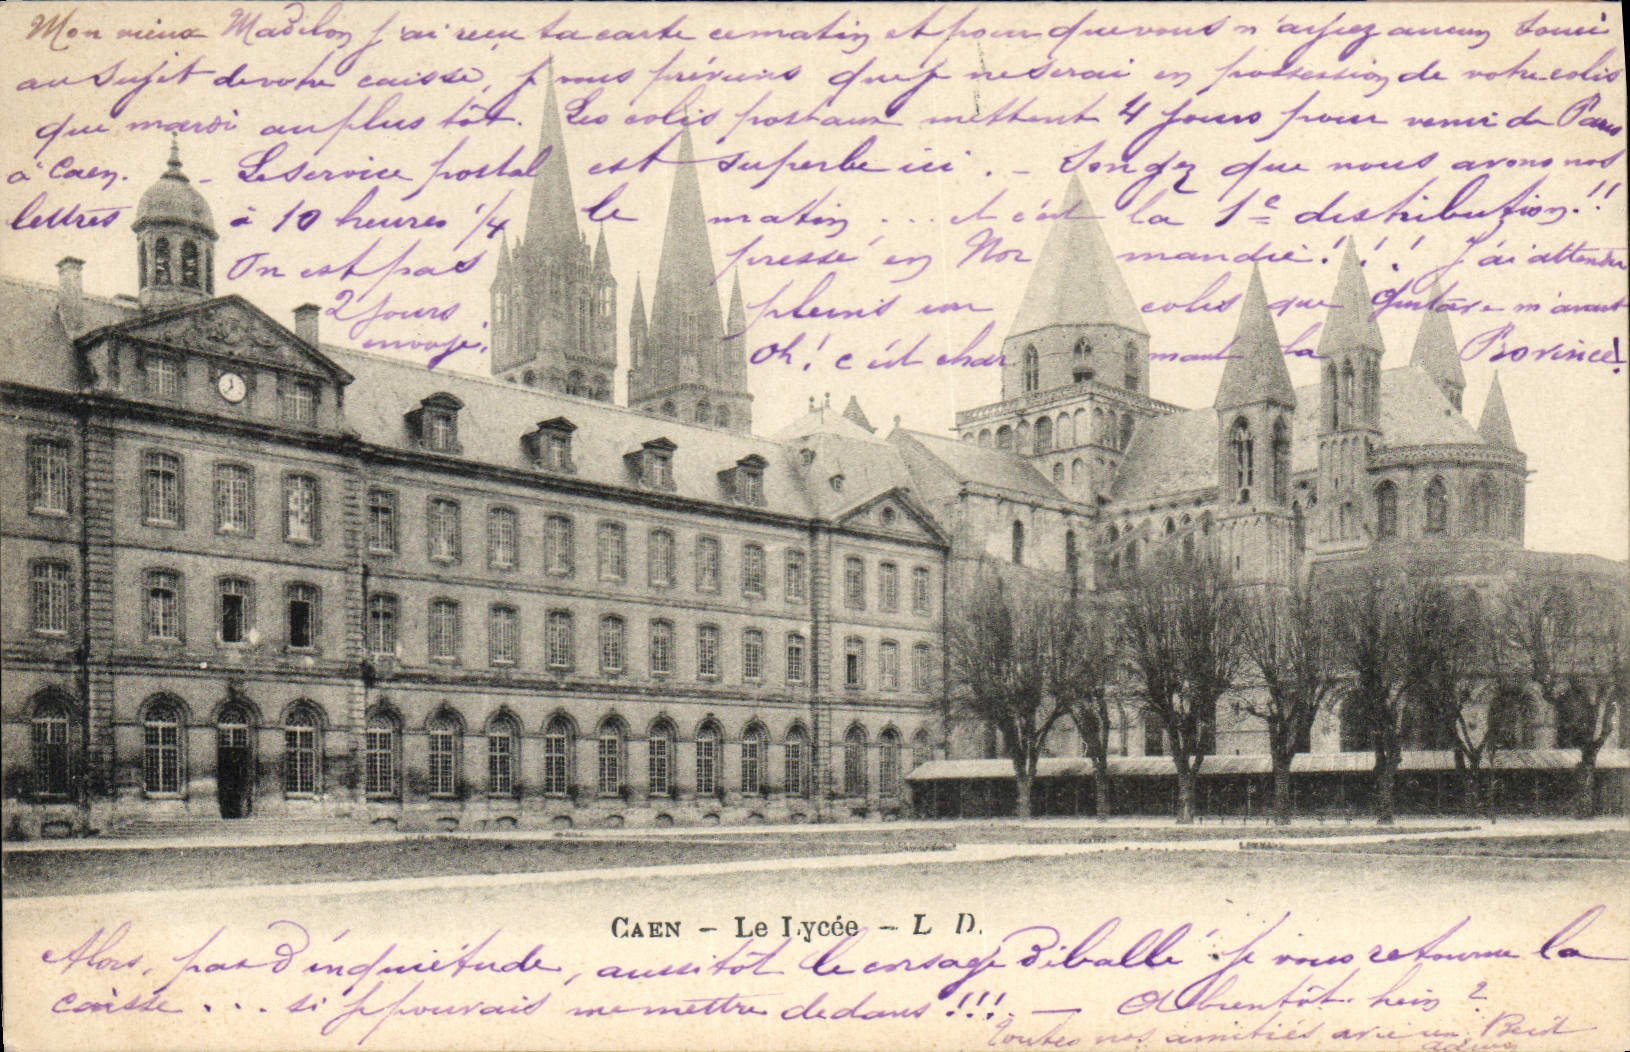 Mon vieux Madilon j'ai reçu ta carte ce matin et pour que vous n'ayiez aucun souci
au sujet de votre caisse, je vous préviens que je ne serai en possession de votre colis
que mardi au plus tôt. Les colis postaux mettent 4 jours pour venir de Paris
à Caen. - Le service postal est superbe ici. - Songez que nous avons nos
lettres à 10 heures 1/4 le matin ... et c'est la 1e distribution.!!
On est pas pressé en Normandie!!! J'ai attendu
2 jours pleins un colis que Gustave m'avait
envoyé. Oh! c'est charmant la Province!
CAEN - Le Lycée - L D.
Alors, pas d'inquiétude, aussitôt le corsage déballé je vous retourne la
caisse ... si je pouvais me mettre dedans!!! - A bientôt hein?
Toutes nos amitiés avec un